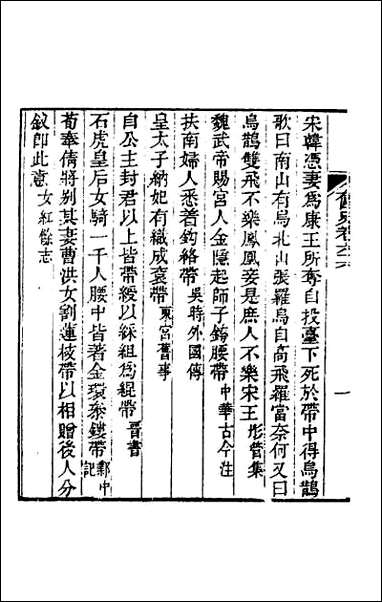 宋韓憑妻爲康王所奪自投臺下死於帶中得烏鵲
歌曰南山有烏北山張羅烏自高飛羅當奈何又曰
烏鵲雙飛不樂鳳凰妾是庶人不樂宋王彤管集
魏武帝賜宮人金隱起師子銙腰帶中華古今注
扶南婦人悉著鈎絡帶吳時外國傳
皇太子納妃有織成衮帶東宮舊事
自公主封君以上皆帶綬以綵組爲緄帶晉書
石虎皇后女騎一千人腰中皆著金環參鏤帶鄴中記
荀奉倩將別其妻曹洪女割蓮枝帶以相贈後人分
釵即此意女紅餘志
一